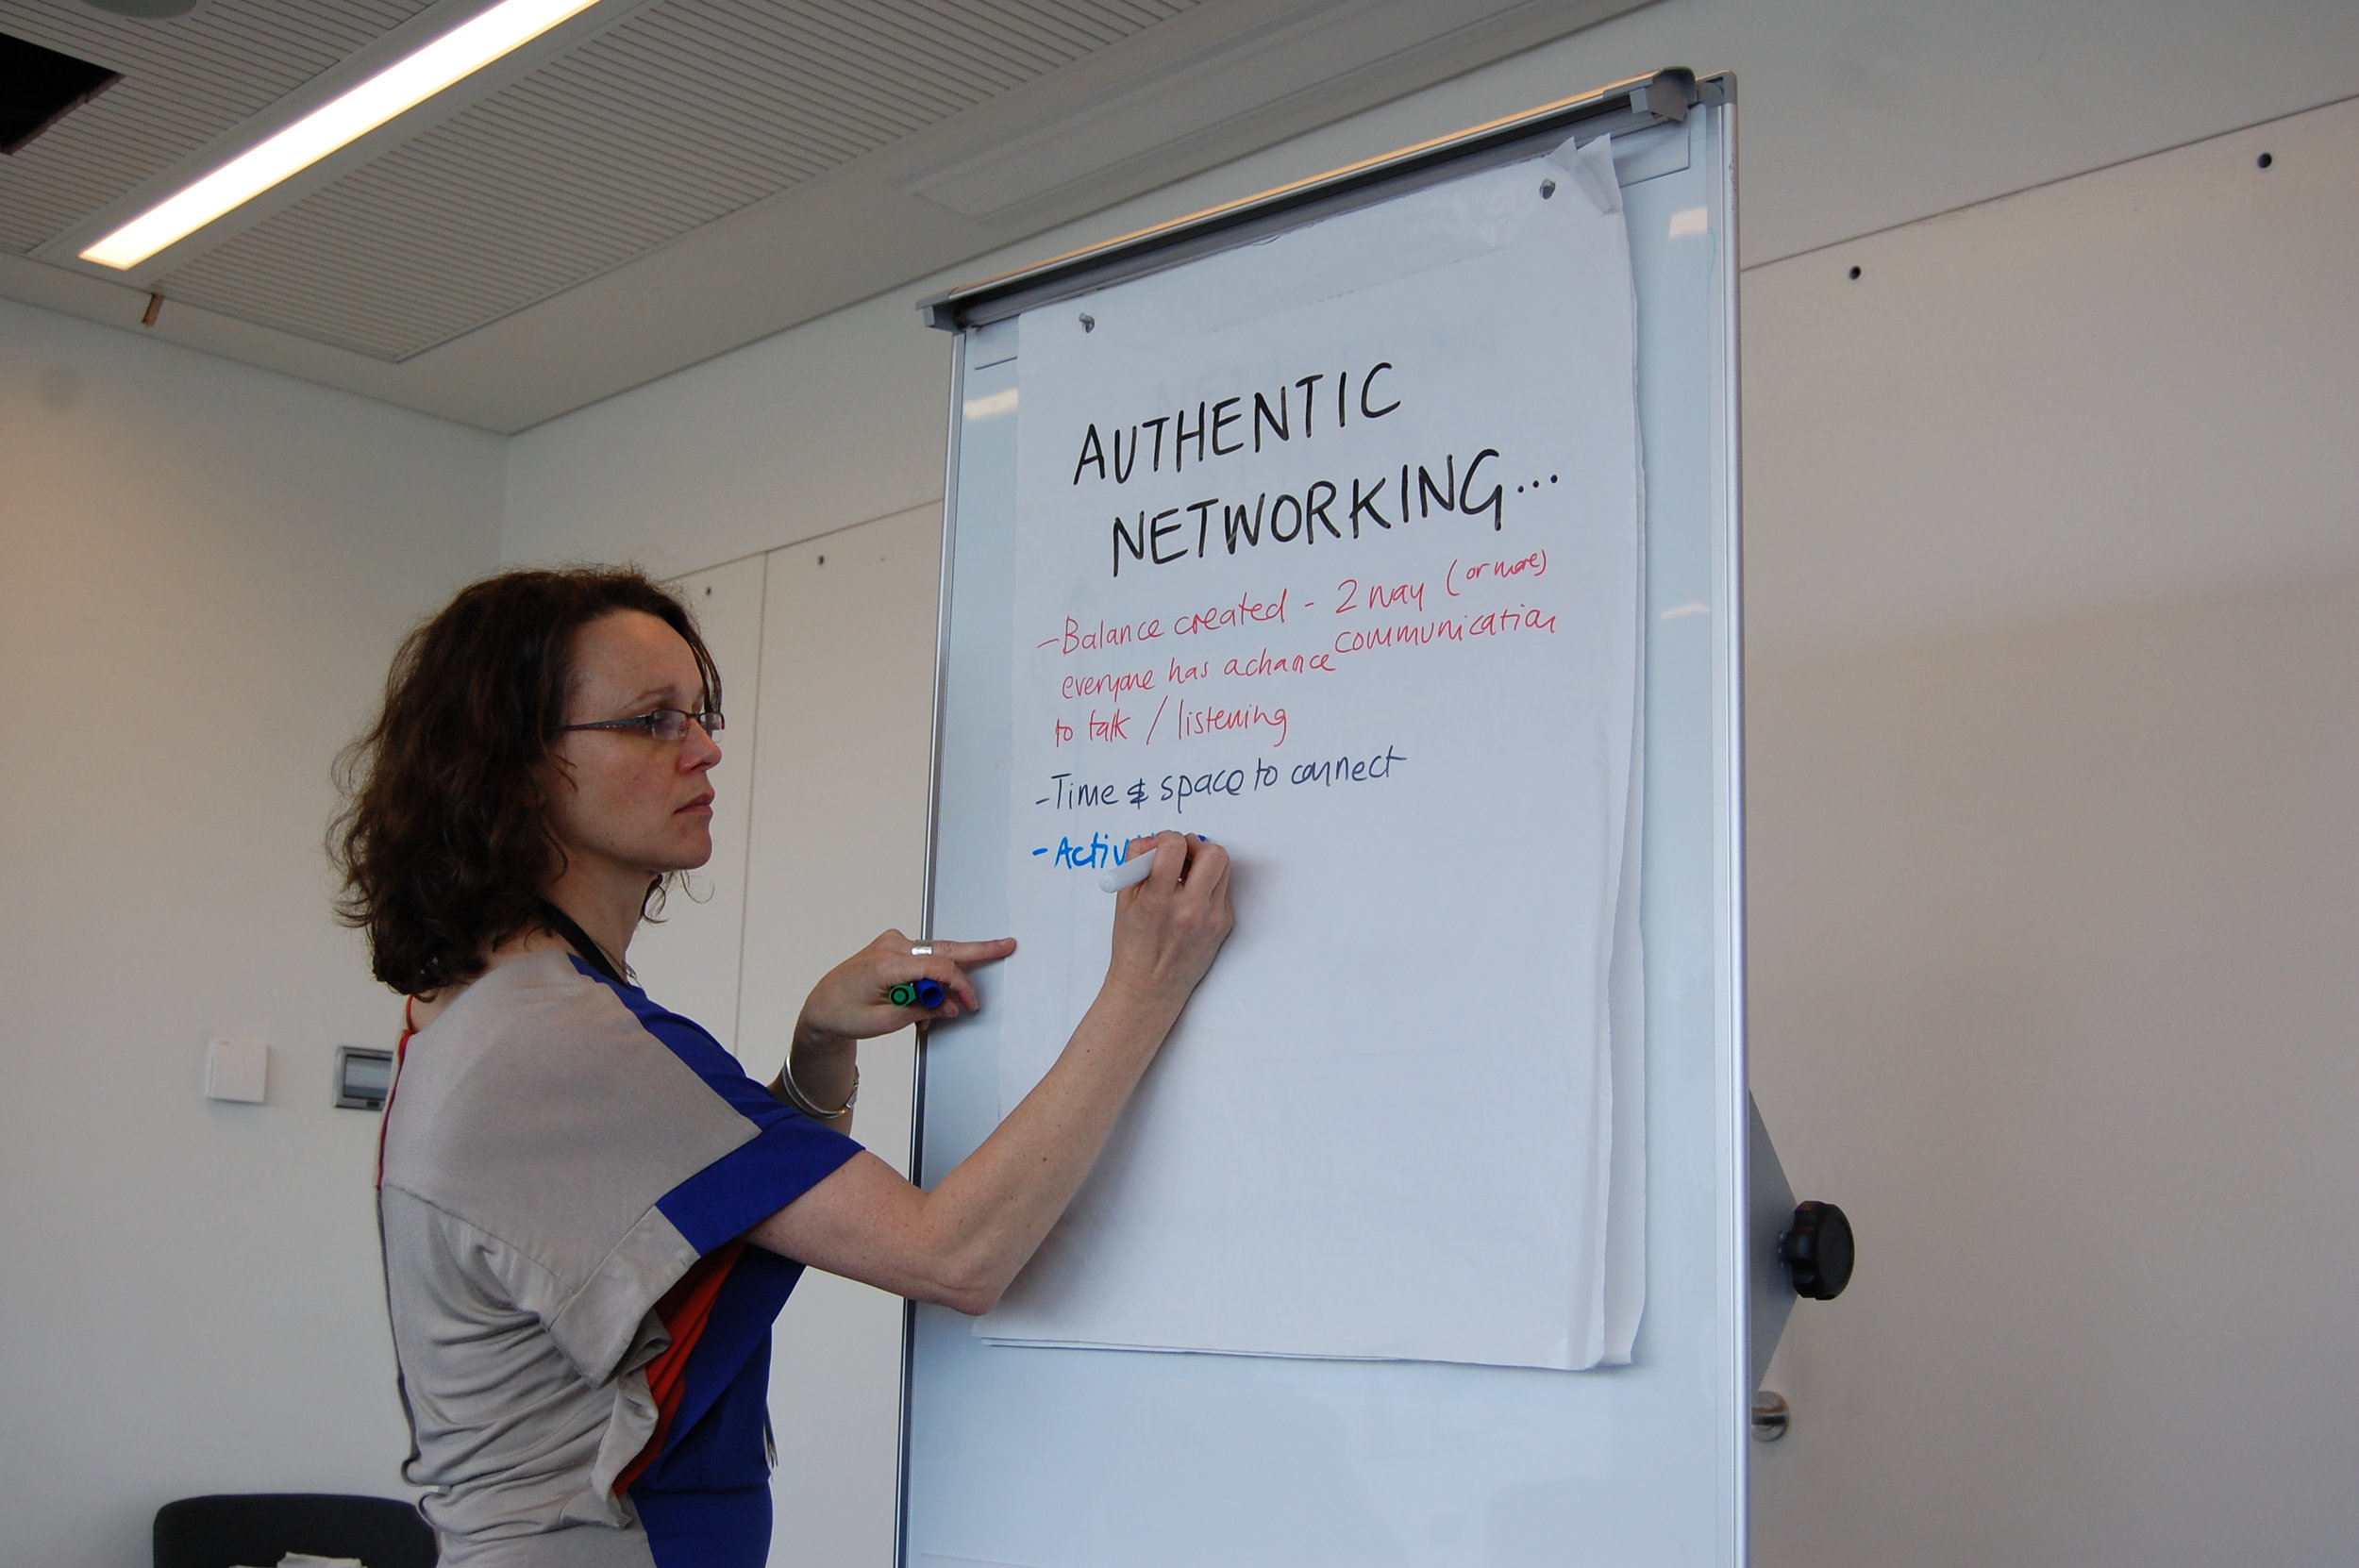 AUTHENTIC
NETWORKING...
- Balance created - 2 way (or more)
communication
everyone has a chance
to talk / listening
- Time & space to connect
-